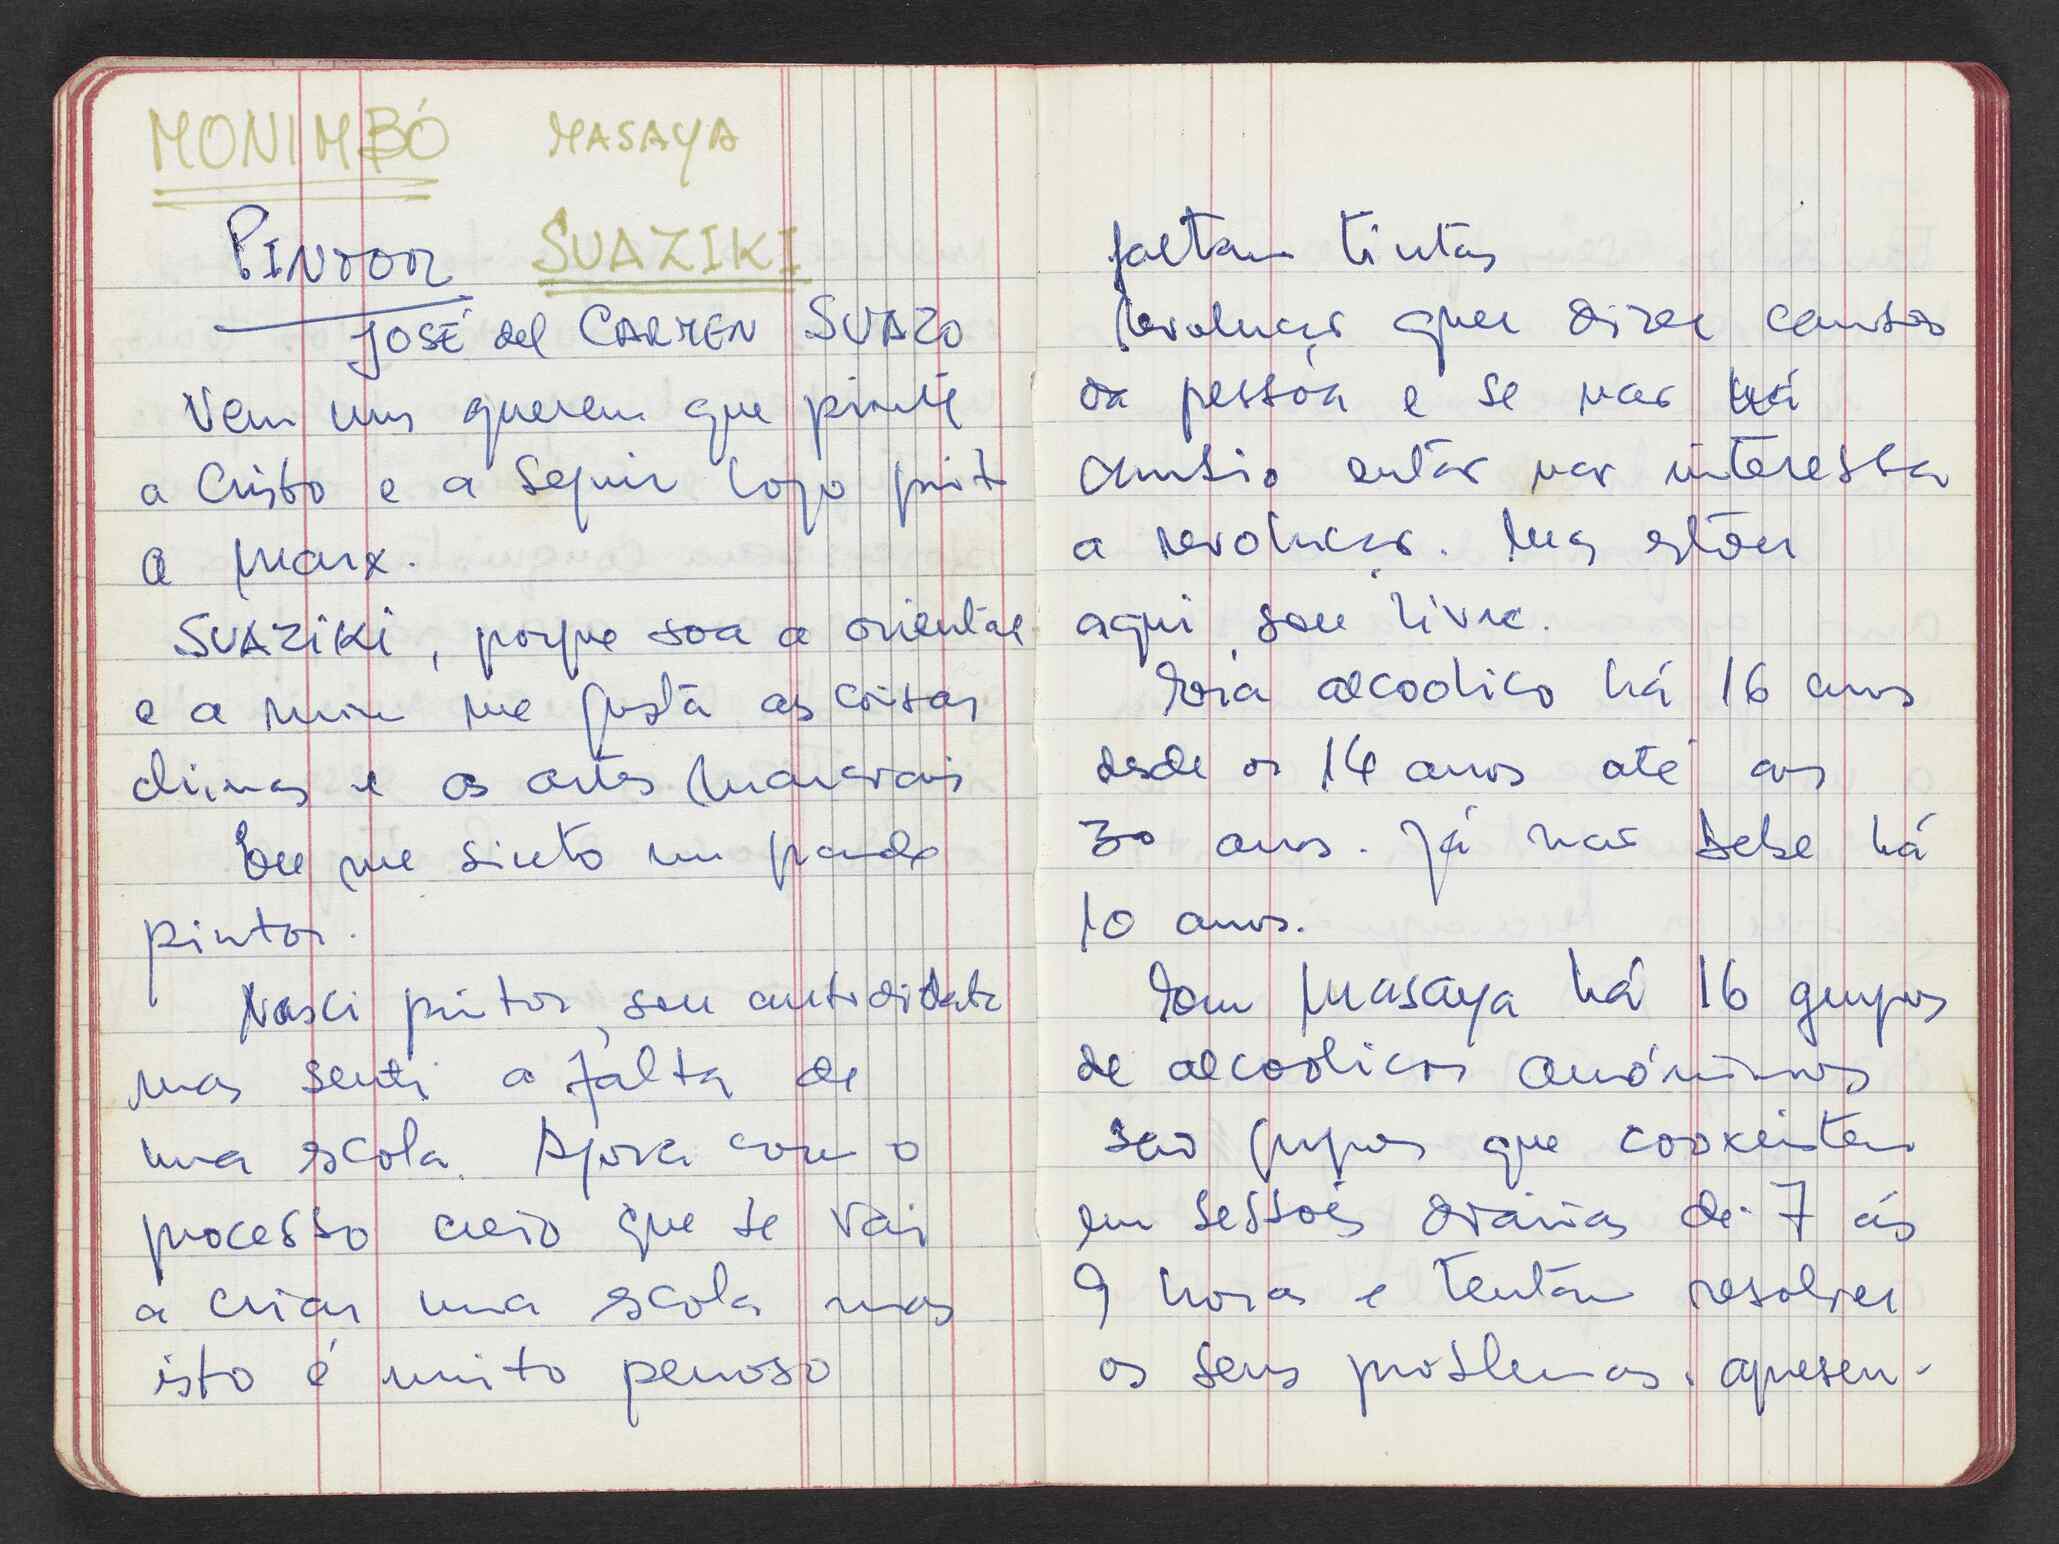 MONIMBÓ MASAYA
PINTOR SUAZIKI
JOSÉ del CARMEN SUAZO
Vem uns querem que pinte
a Cristo e a seguir logo pint
a Marx.
SUAZIKI, porque soa a oriental
e a mim me gusta as coisas
chinas e as artes marciais
Eu me sinto um grande
pintor.
Nasci pintor, sou autodidata
mas senti a falta de
uma escola. Agora com o
processo creio que se vai
a criar uma escola mas
isto é muito penoso
faltam tintas
Revolução quer dizer cambio
da pessoa e se não há
cambio então não interessa
a revolução. Mas estou
aqui, sou livre.
Era alcoolico há 16 anos
desde os 14 anos até aos
30 anos. Já não bebe há
10 anos.
Em Masaya há 16 grupos
de alcoolicos anónimos
são grupos que coexistem
em sessões diarias de 7 ás
9 horas e tentam resolver
os seus problemas. apresen-